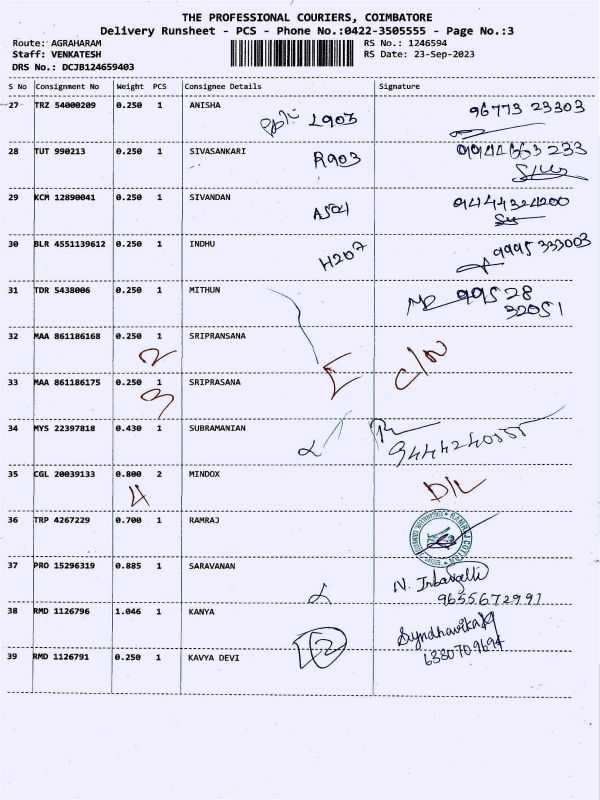 THE PROFESSIONAL COURIERS, COIMBATORE
Delivery Runsheet - PCS - Phone No.:0422-3505555 - Page No.:3
Route: AGRAHARAM
Staff: VENKATESH
DRS No.: DCJB124659403
RS No.: 1246594
RS Date: 23-Sep-2023
S No Consignment No Weight PCS Consignee Details Signature
27 TRZ 54000209 0.250 1 ANISHA L903 96773 23303
28 TUT 990213 0.250 1 SIVASANKARI R903 233
29 KCM 12890041 0.250 1 SIVANDAN A504 9444324200
30 BLR 4551139612 0.250 1 INDHU H207 9995 333003
31 TDR 5438006 0.250 1 MITHUN 995 28
32051
32 MAA 861186168 0.250 1 SRIPRANSANA
2 C/N
33 MAA 861186175 0.250 1 SRIPRASANA
3
34 MYS 22397818 0.430 1 SUBRAMANIAN
35 CGL 20039133 0.800 2 MINDOX
4 D/L
36 TRP 4267229 0.700 1 RAMRAJ RAMRAJ COTTON
37 PRO 15296319 0.885 1 SARAVANAN
9655672991
38 RMD 1126796 1.046 1 KANYA
2 6380709694
39 RMD 1126791 0.250 1 KAVYA DEVI